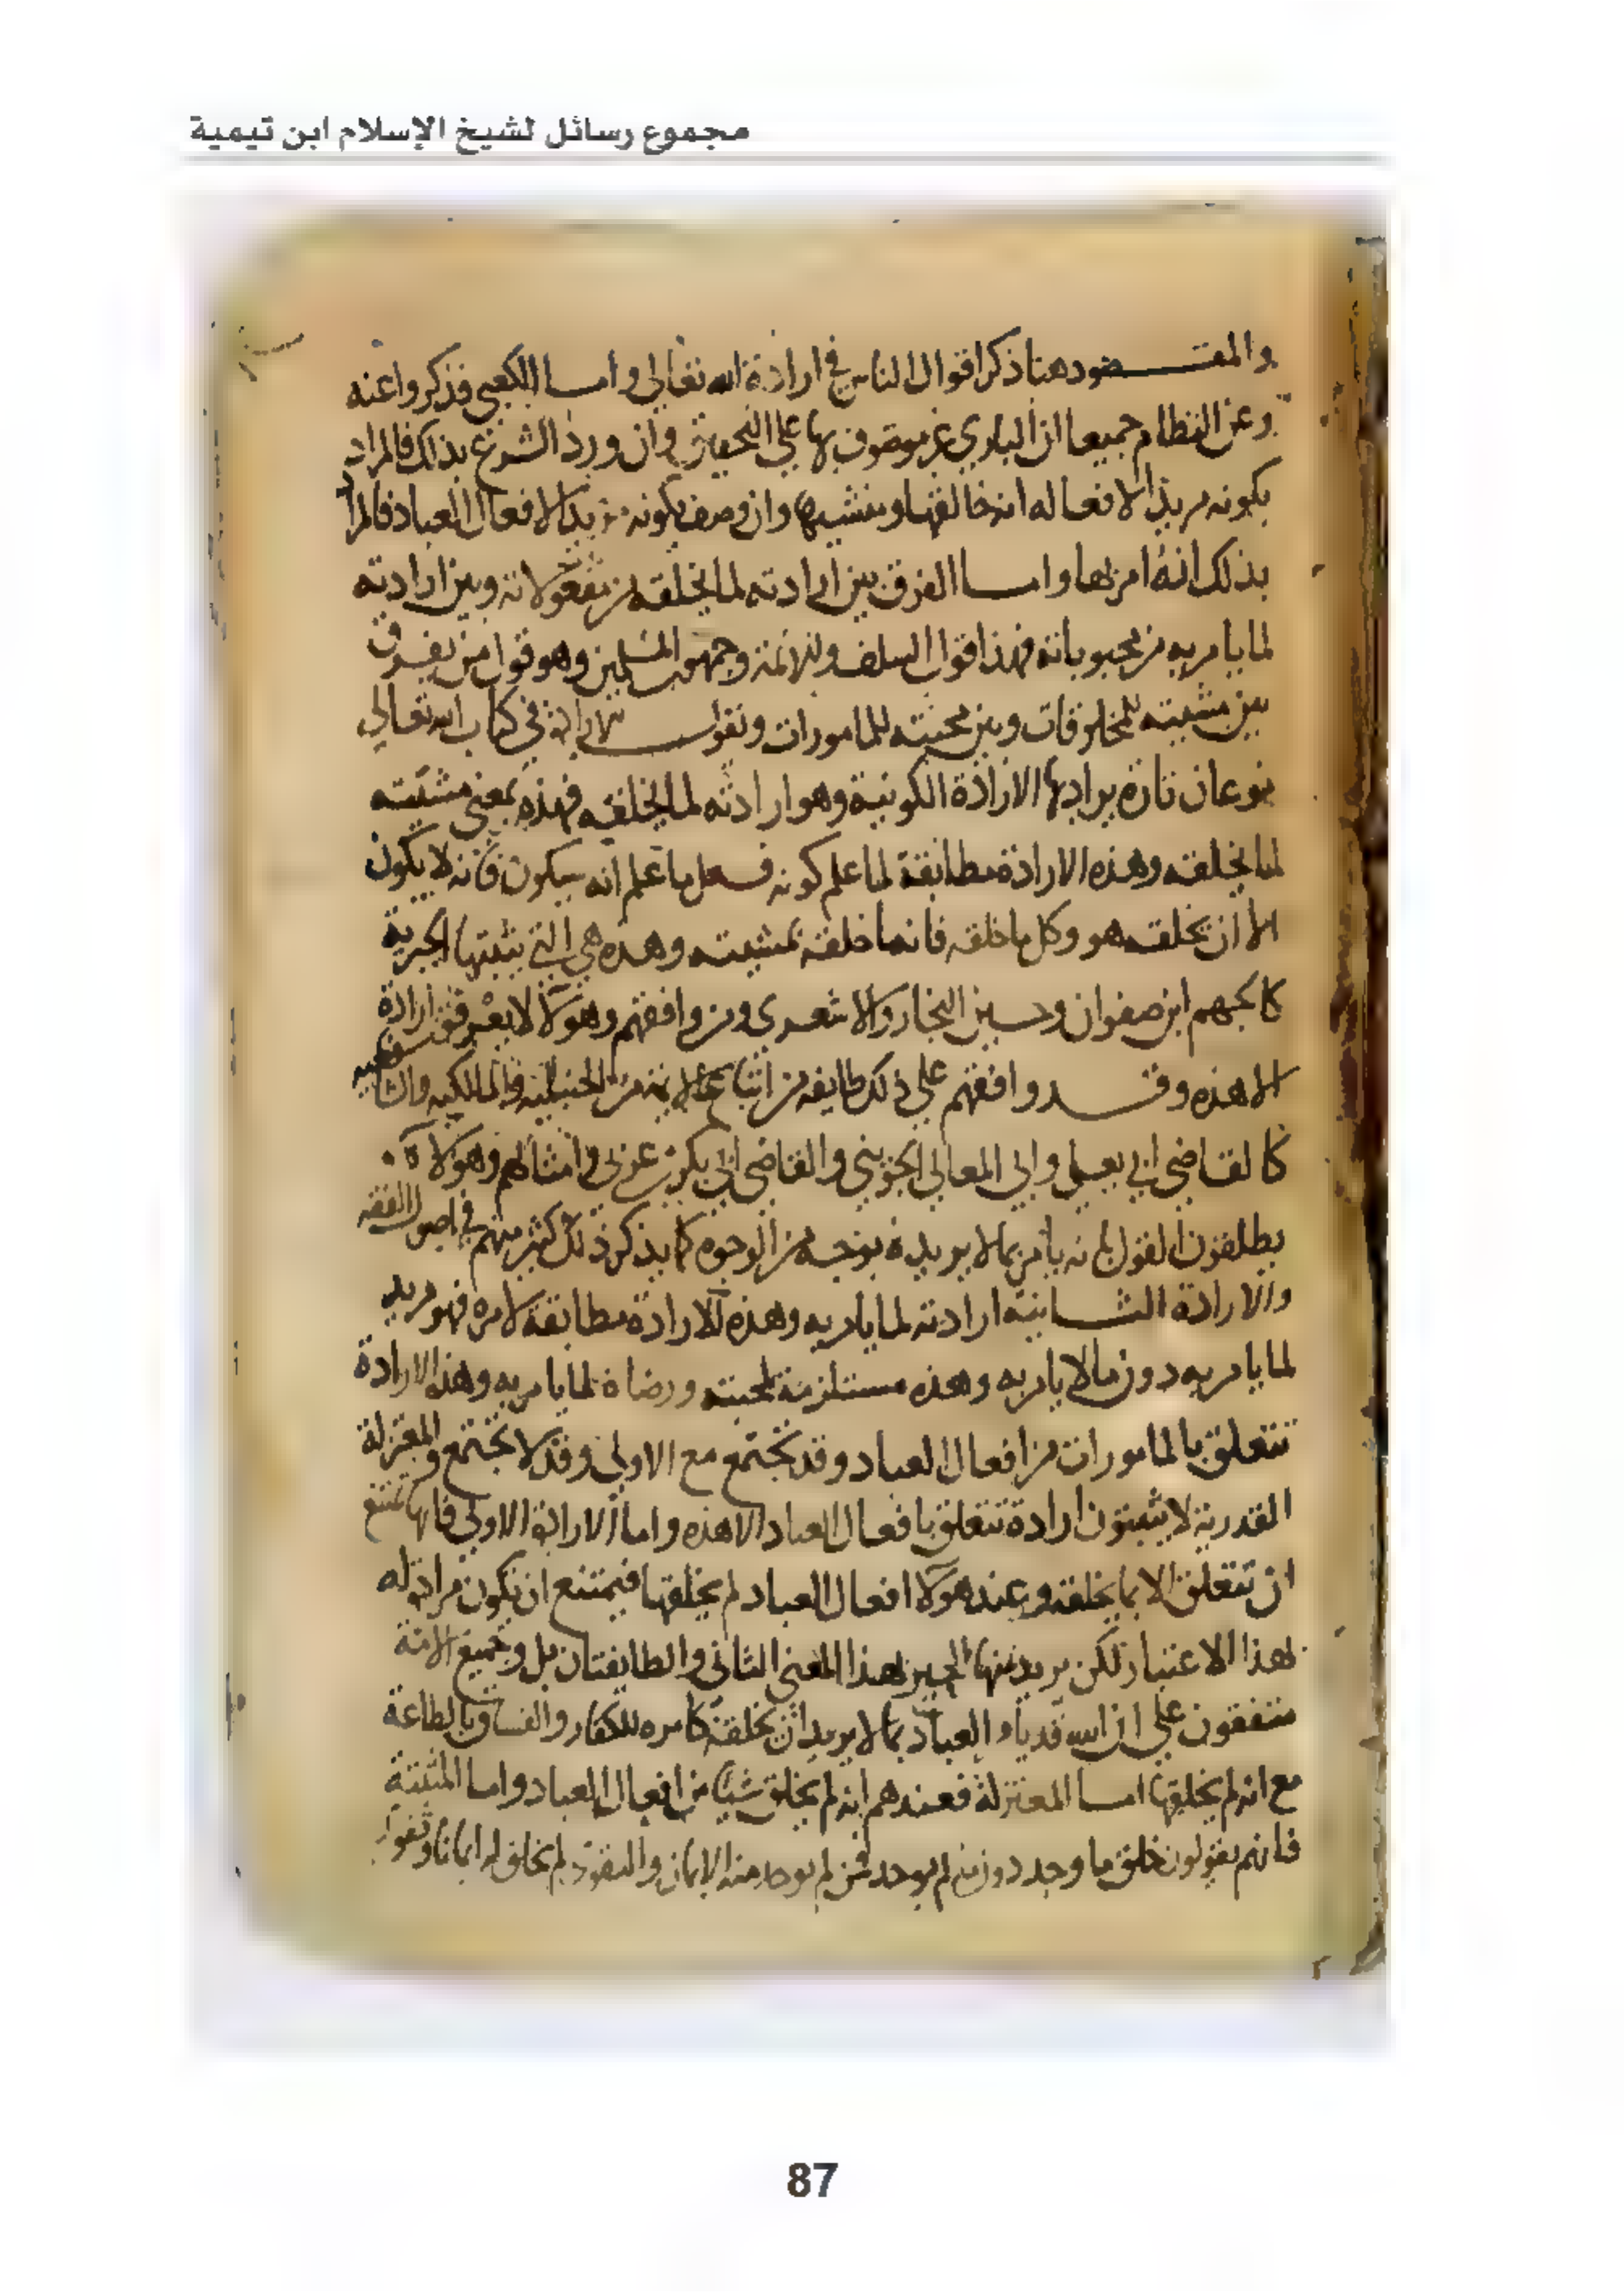 مجموع رسائل لشيخ الإسلام ابن تيمية
والمقصود هنا ذكر اقوال الناس في ارادة الله تعالى واما الكعبي فذكروا عنه
وعن النظام جميعا ان الباري غير موصوف بها على التحقيق وان ورد الشرع بذلك فالمراد
بكونه مريدا لافعاله انه خالقها ومنشيها وان وصف بكونه مريدا لافعال العباد فالمراد
بذلك انه امر بها واما الفرق بين ارادته لما يخلقه من مفعولاته وبين ارادته
لما يامر به من محبوباته فهذا قول السلف والائمة وجمهور المسلمين وهو قول من يفرق
بين مشيته للمخلوقات وبين محبته للمامورات ونقول الارادة في كتاب الله تعالى
نوعان تارة يراد بها الارادة الكونية وهو ارادته لما يخلقه فهذه بمعنى مشيته
لما يخلقه وهذه الارادة مطابقة لما علم كونه فعل ما علم انه سيكون فانه لا يكون
الا ان يخلقه هو وكل ما خلقه فانما خلقه بمشيته وهذه هي التي يثبتها الجبرية
كالجهم ابن صفوان وحسين النجار والاشعري ومن وافقهم وهولا لا يعرفون ارادة
الا هذه وقد وافقهم على ذلك طايفة من اتباع الايمة من الحنبلية والمالكية والشافعية
كالقاضي ابي يعلى وابي المعالي الجويني والقاضي ابي بكر بن عربي وامثالهم وهولاء
يطلقون القول بانه يامر بما لا يريده بوجه من الوجوه كما يذكر ذلك كثير منهم في اصول الفقه
والارادة الثانية ارادته لما يامر به وهذه الارادة مطابقة لامره فهو مريد
لما يامر به دون ما لا يامر به وهذه مستلزمة لمحبته ورضاه لما يامر به وهذه الارادة
تتعلق بالمامورات من افعال العباد وقد تجتمع مع الاولى وقد لا تجتمع والمعتزلة
القدرية لا يثبتون ارادة تتعلق بافعال العباد الا هذه واما الارادة الاولى فانها تمتنع
ان تتعلق الا بما يخلقه وعند هولا افعال العباد لم يخلقها فيمتنع ان تكون مرادة له
بهذا الاعتبار لكن يريد منها بهذا المعنى الثاني والطايفتان بل وجميع الامة
متفقون على ان الله قد يامر العباد بما لا يريد ان يخلقه كامره للكفار والفساق بالطاعة
مع انه لم يخلقها اما المعتزلة فعندهم انه لم يخلق شيئا من افعال العباد واما المثبتة
فانهم يقولون خلق ما وجد دون ما لم يوجد فمن لم يوجد منه الايمان والتقوى لم يخلق له ايمانا وتقوى
87